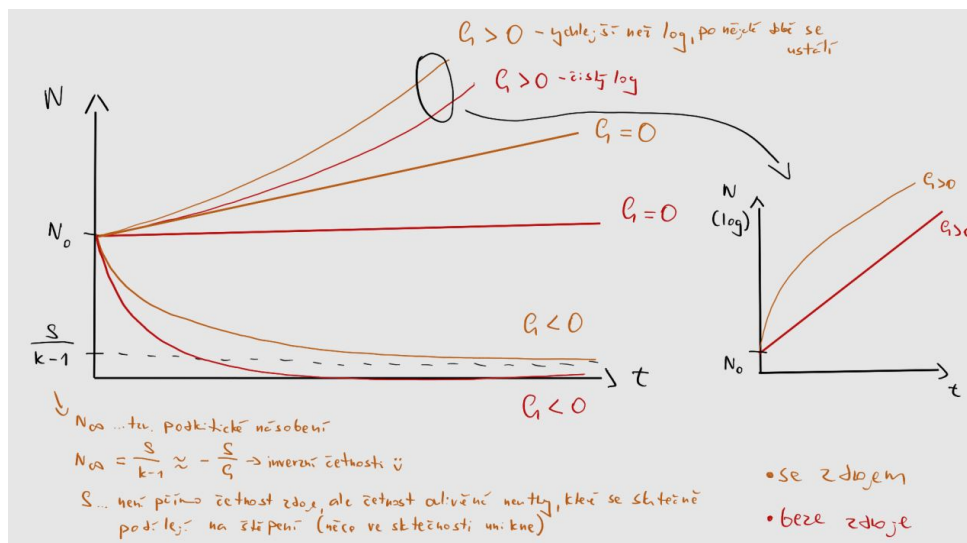 ϱ > 0 – rychlejší než log, po nějaké době se
ustálí
ϱ > 0 – čistý log
N
ϱ = 0
N
(log)
ϱ>0
ϱ = 0
N₀
ϱ>0
ϱ < 0
S
k-1
N₀
t
t
ϱ < 0
N∞ ... tzv. podkritické násobení
N∞ = S/k-1 ≈ - S/ϱ → inverzní četnosti ü
S... není přímo četnost zdroje, ale četnost neutrony, které se skutečně
podílejí na štěpení (něco ve skutečnosti unikne)
• se zdrojem
• beze zdroje